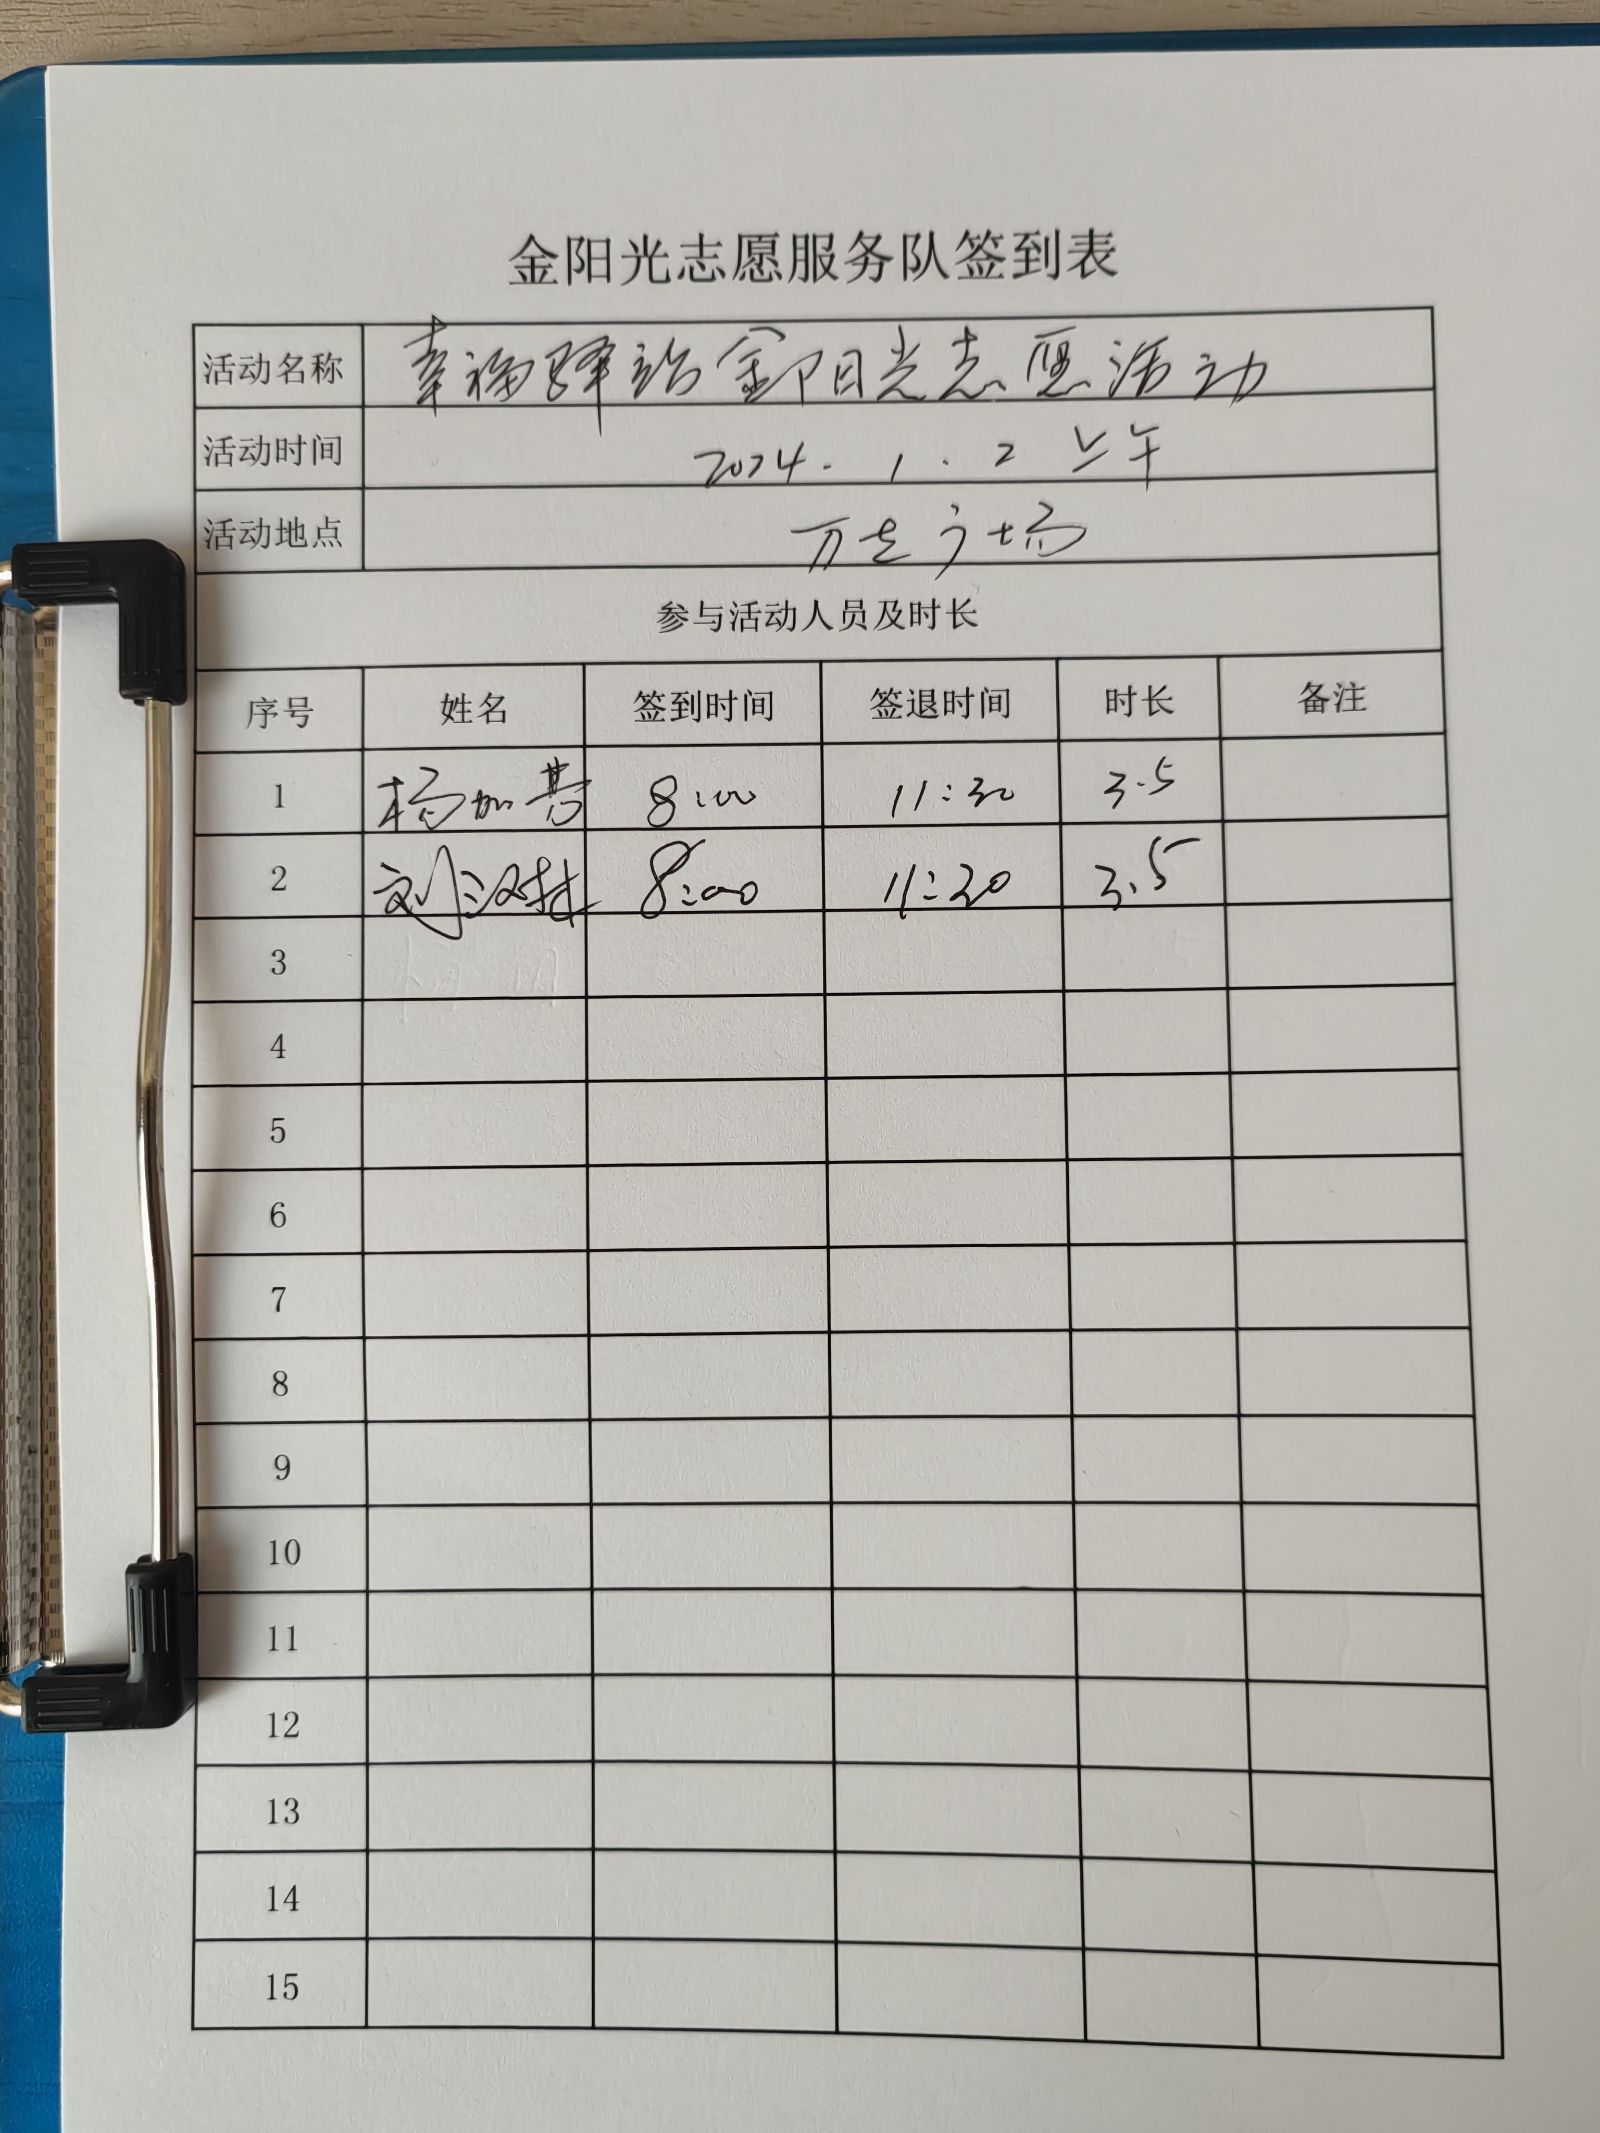 金阳光志愿服务队签到表
活动名称 幸福驿站金阳光志愿活动
活动时间 2024.1.2 上午
活动地点 万达广场
参与活动人员及时长
序号 姓名 签到时间 签退时间 时长 备注
1 杨加 8:00 11:30 3.5
2 刘汉林 8:00 11:30 3.5
3
4
5
6
7
8
9
10
11
12
13
14
15